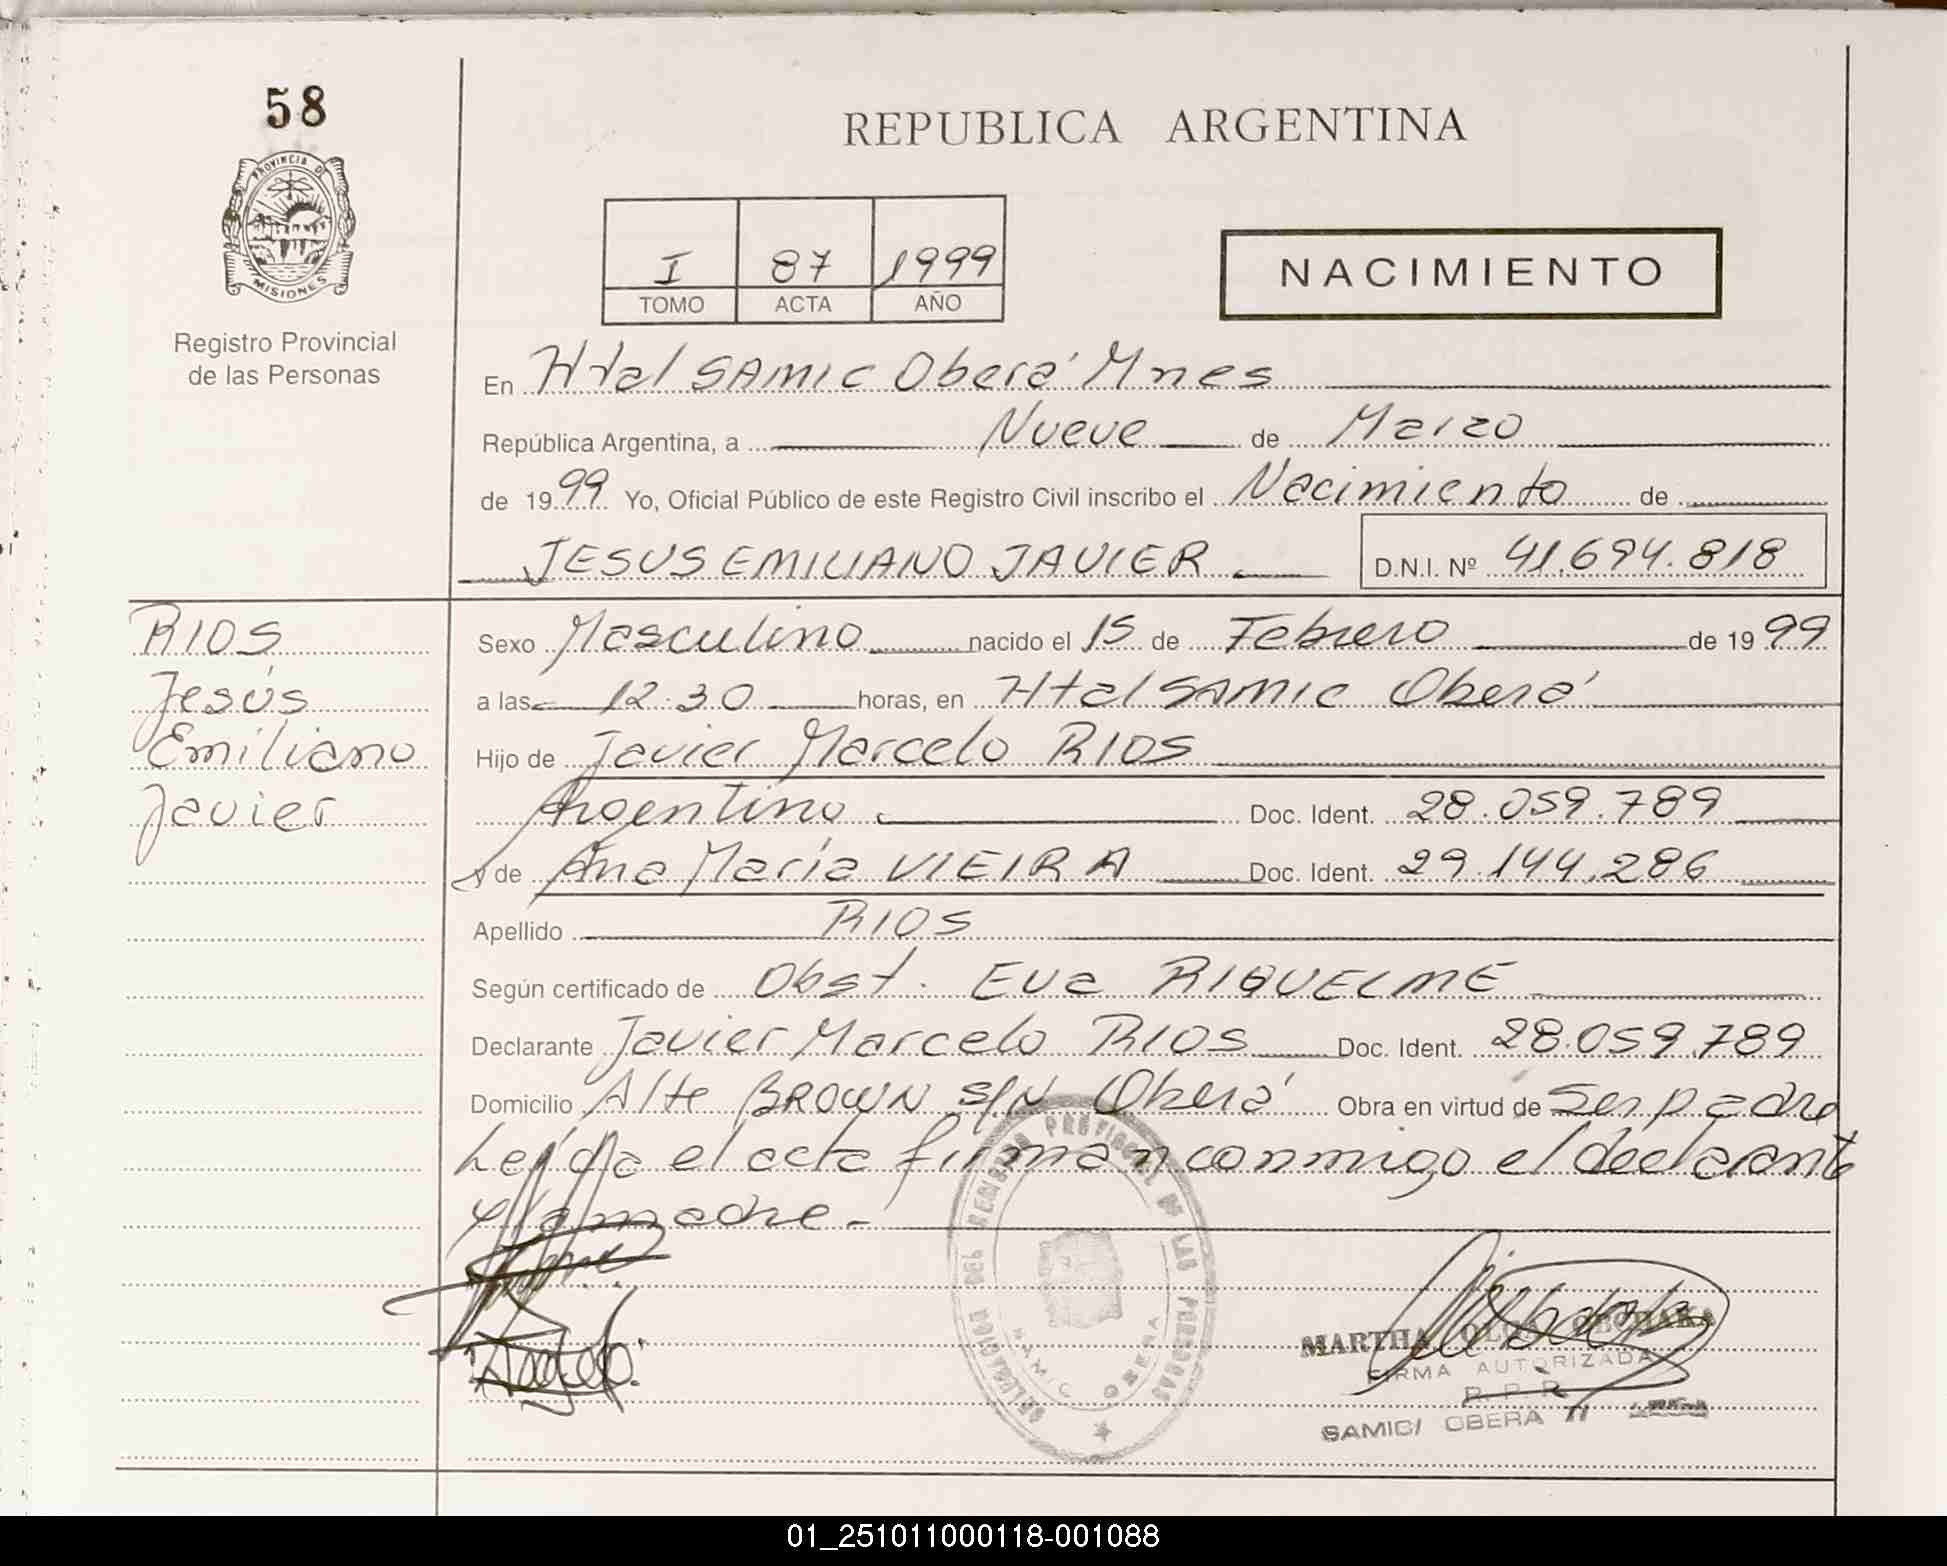 58
PROVINCIA DE
MISIONES
Registro Provincial
de las Personas
REPUBLICA ARGENTINA
I 87 1999
TOMO ACTA AÑO
NACIMIENTO
En Htal SAMIC Oberá Mnes
República Argentina, a Nueve de Marzo
de 1999 Yo, Oficial Público de este Registro Civil inscribo el Nacimiento de
JESUS EMILIANO JAVIER D.N.I. Nº 41.694.818
RIOS
Jesús
Emiliano
Javier
Sexo Masculino nacido el 15 de Febrero de 1999
a las 12.30 horas, en Htal SAMIC Oberá
Hijo de Javier Marcelo RIOS
Argentino Doc. Ident. 28.059.789
y de Ana María VIEIRA Doc. Ident. 29.144.286
Apellido RIOS
Según certificado de Obst. Eva RIQUELME
Declarante Javier Marcelo RIOS Doc. Ident. 28.059.789
Domicilio Alte BROWN S/N Oberá Obra en virtud de Ser padre
Leída el acta firman conmigo el declarante
y la madre.-
DELEGACION DEL REGISTRO PROVINCIAL DE LAS PERSONAS
SAMIC OBERA
MARTHA OLGA
FIRMA AUTORIZADA
R. P. P.
SAMIC/ OBERA
01_251011000118-001088